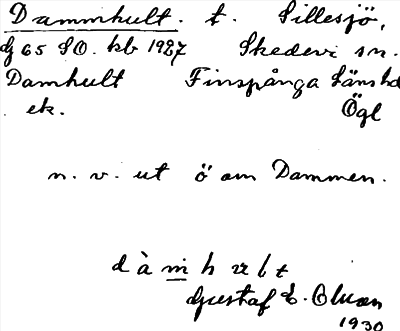 Dammhult. t. Lillesjö,
Gj 65 SO. kb 1927 Skedevi sn.
Damhult Finspånga Länshd
ek. Ögl
n. v. ut ö om Dammen.
d à m h
Gustaf E. Olson
1930